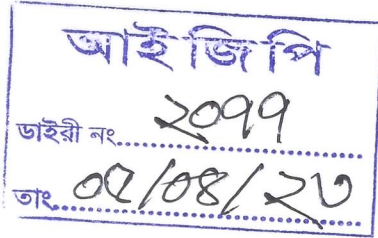 আই জি পি
ডাইরী নং ২০৭৭
তাং ০৫/০৪/২৩